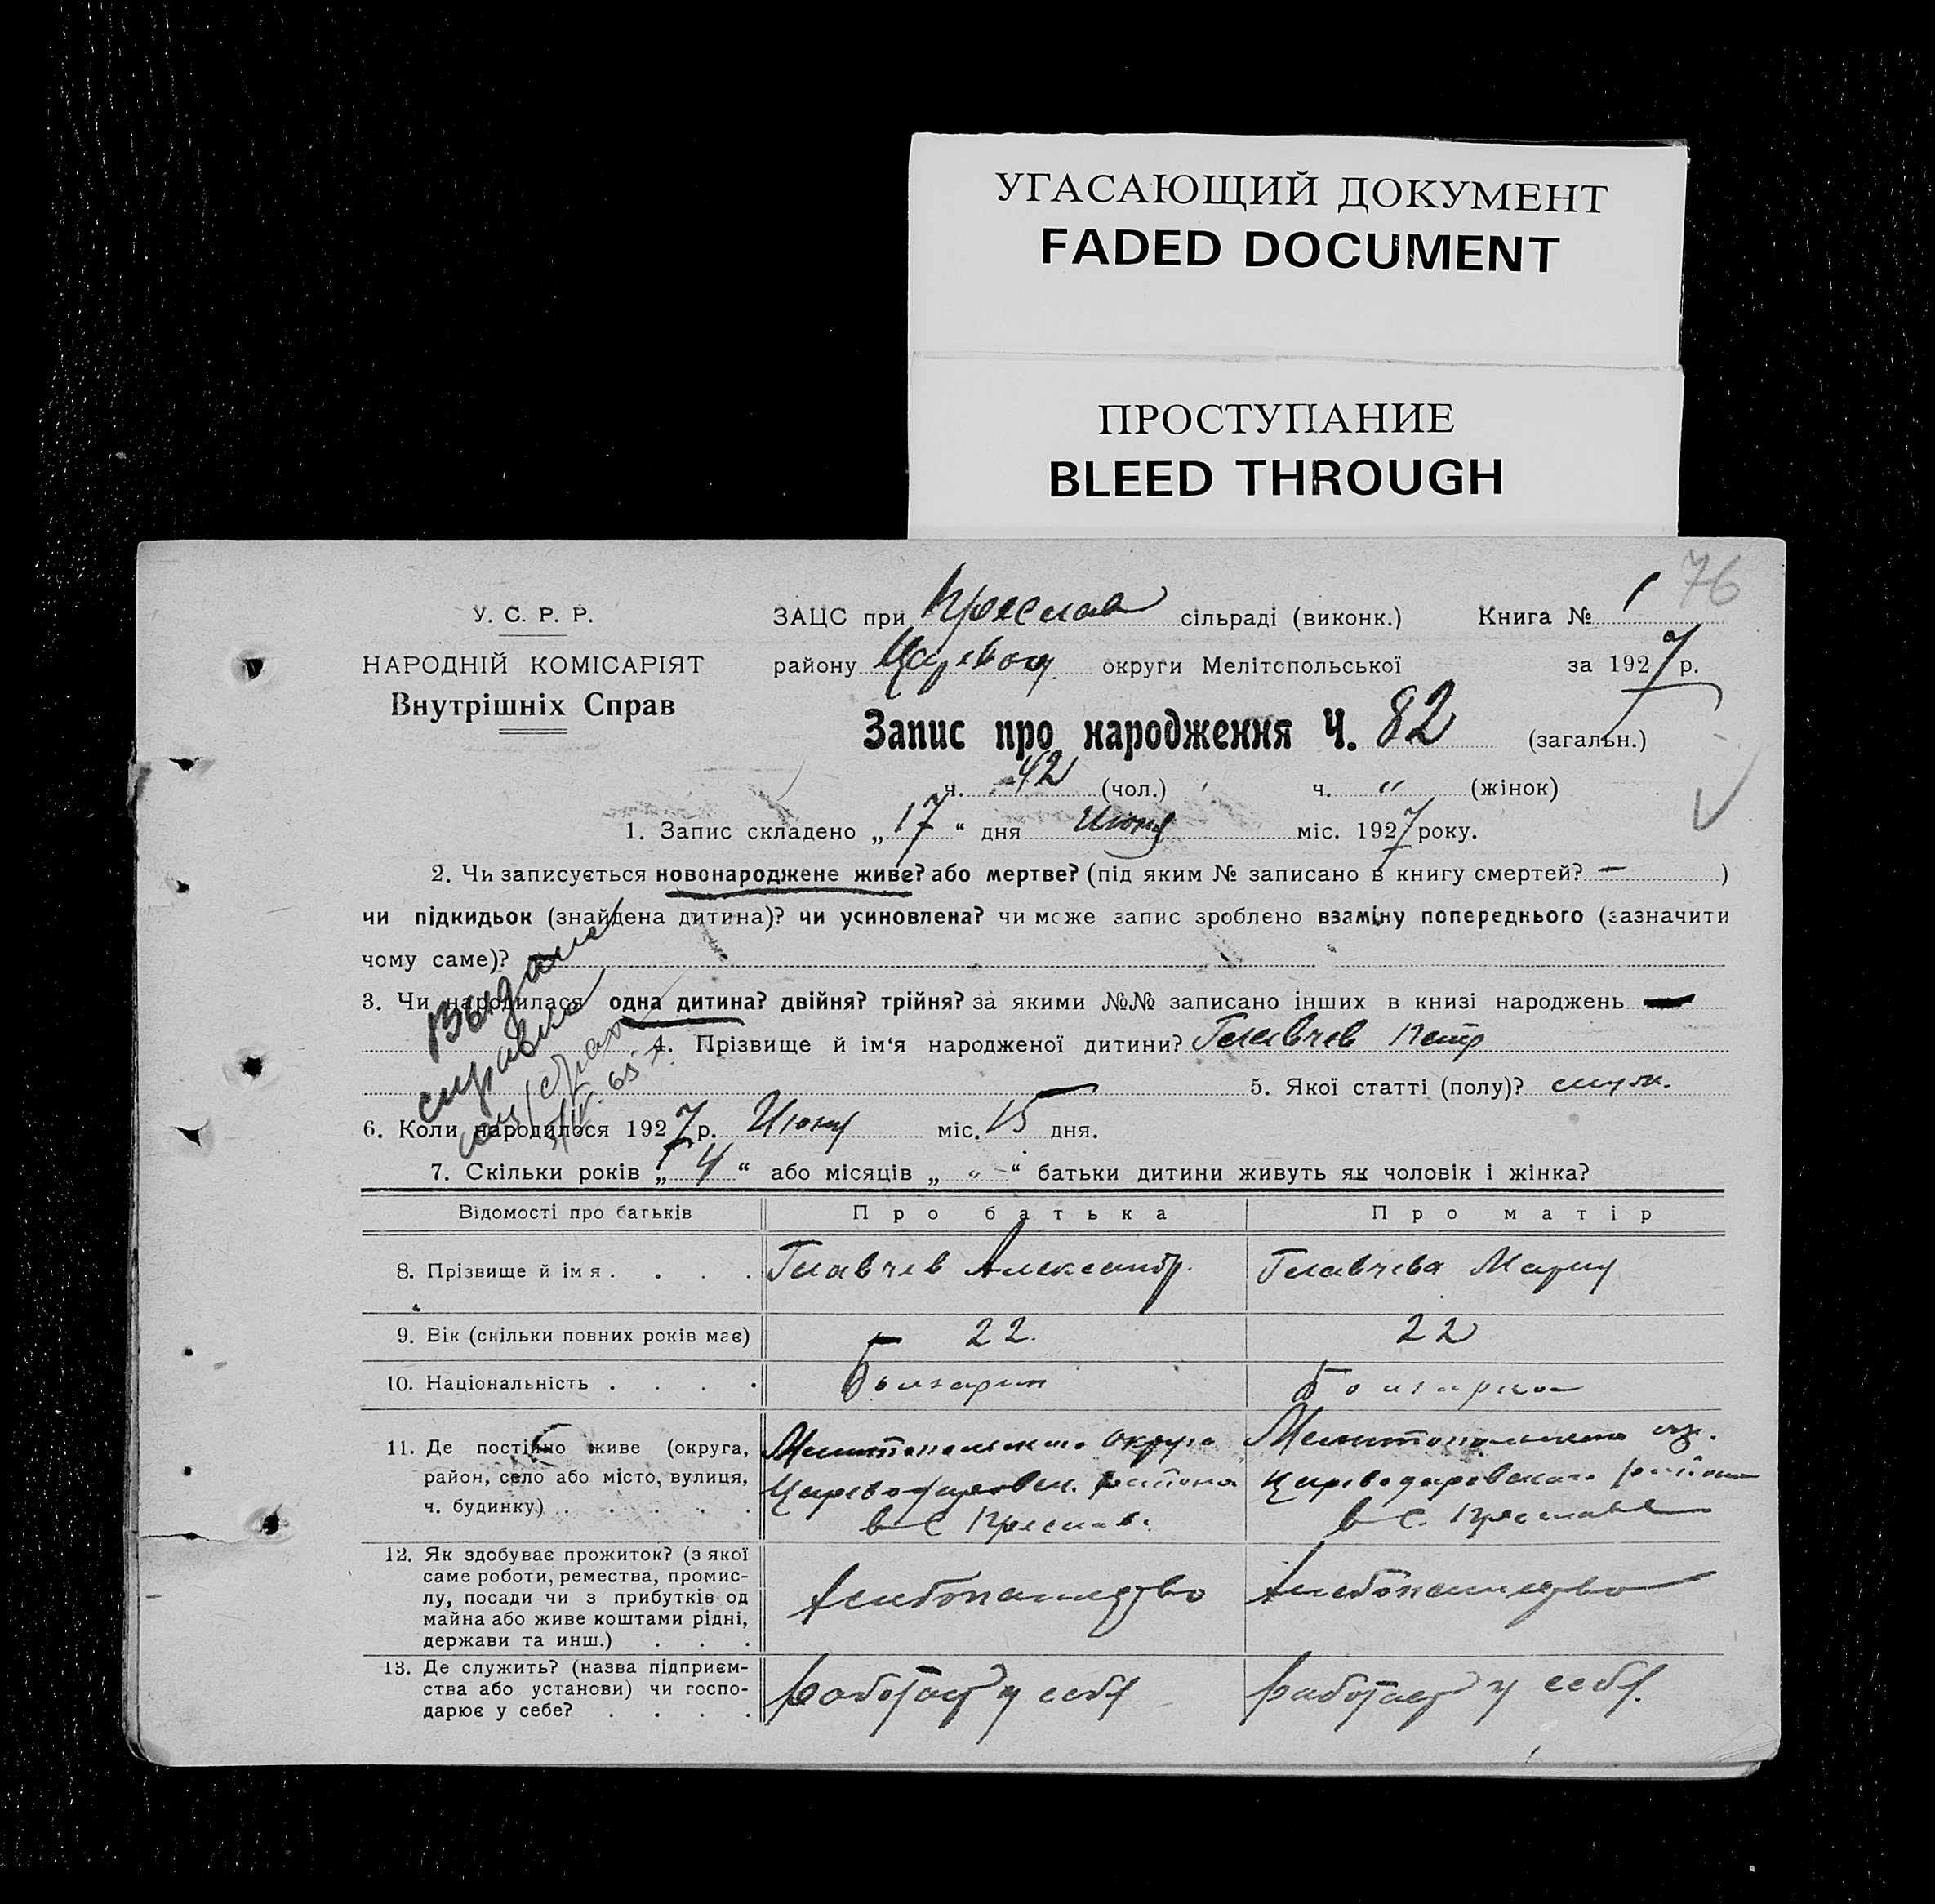 УГАСАЮЩИЙ ДОКУМЕНТ
FADED DOCUMENT
ПРОСТУПАНИЕ
BLEED THROUGH
76
У. С. Р. Р.
НАРОДНІЙ КОМІСАРІЯТ
Внутрішніх Справ
ЗАЦС при Преслав сільраді (виконк.) Книга № 1
району Царевод. округи Мелітопольської за 1927 р.
Запис про народження Ч. 82 (загальн.)
ч. 42 (чол.) ч. " (жінок)
1. Запис складено „17“ дня Июня міс. 1927 року.
2. Чи записується новонароджене живе? або мертве? (під яким № записано в книгу смертей? — )
чи підкидьок (знайдена дитина)? чи усиновлена? чи може запис зроблено взаміну попереднього (зазначити
чому саме)?
3. Чи народилася одна дитина? двійня? трійня? за якими №№ записано інших в книзі народжень —
4. Прізвище й ім‘я народженої дитини? Главчев Петр
5. Якої статті (полу)? муж.
6. Коли народилося 1927 р. Июня міс. 15 дня.
7. Скільки років „4“ або місяців „ " “ батьки дитини живуть як чоловік і жінка?
Выдана
справка
Відомості про батьків Про батька Про матір
8. Прізвище й імя . . . . Главчев Александр. Главчева Мария
9. Вік (скільки повних років має) 22. 22
10. Національність . . . . Болгарин Болгарка
11. Де постійно живе (округа, район, село або місто, вулиця, ч. будинку) . . . . .
Мелитопольского округа
Цареводаровск. района
в с Преслав.
Мелитопольского окр.
Цареводаровского района
в с. Преславе
12. Як здобуває прожиток? (з якої
саме роботи, ремества, промис-
лу, посади чи з прибутків од
майна або живе коштами рідні,
держави та инш.) . . .
Хлебопашество Хлебопашество
13. Де служить? (назва підприєм-
ства або установи) чи госпо-
дарює у себе? . . . .
Работает у себя Работает у себя.